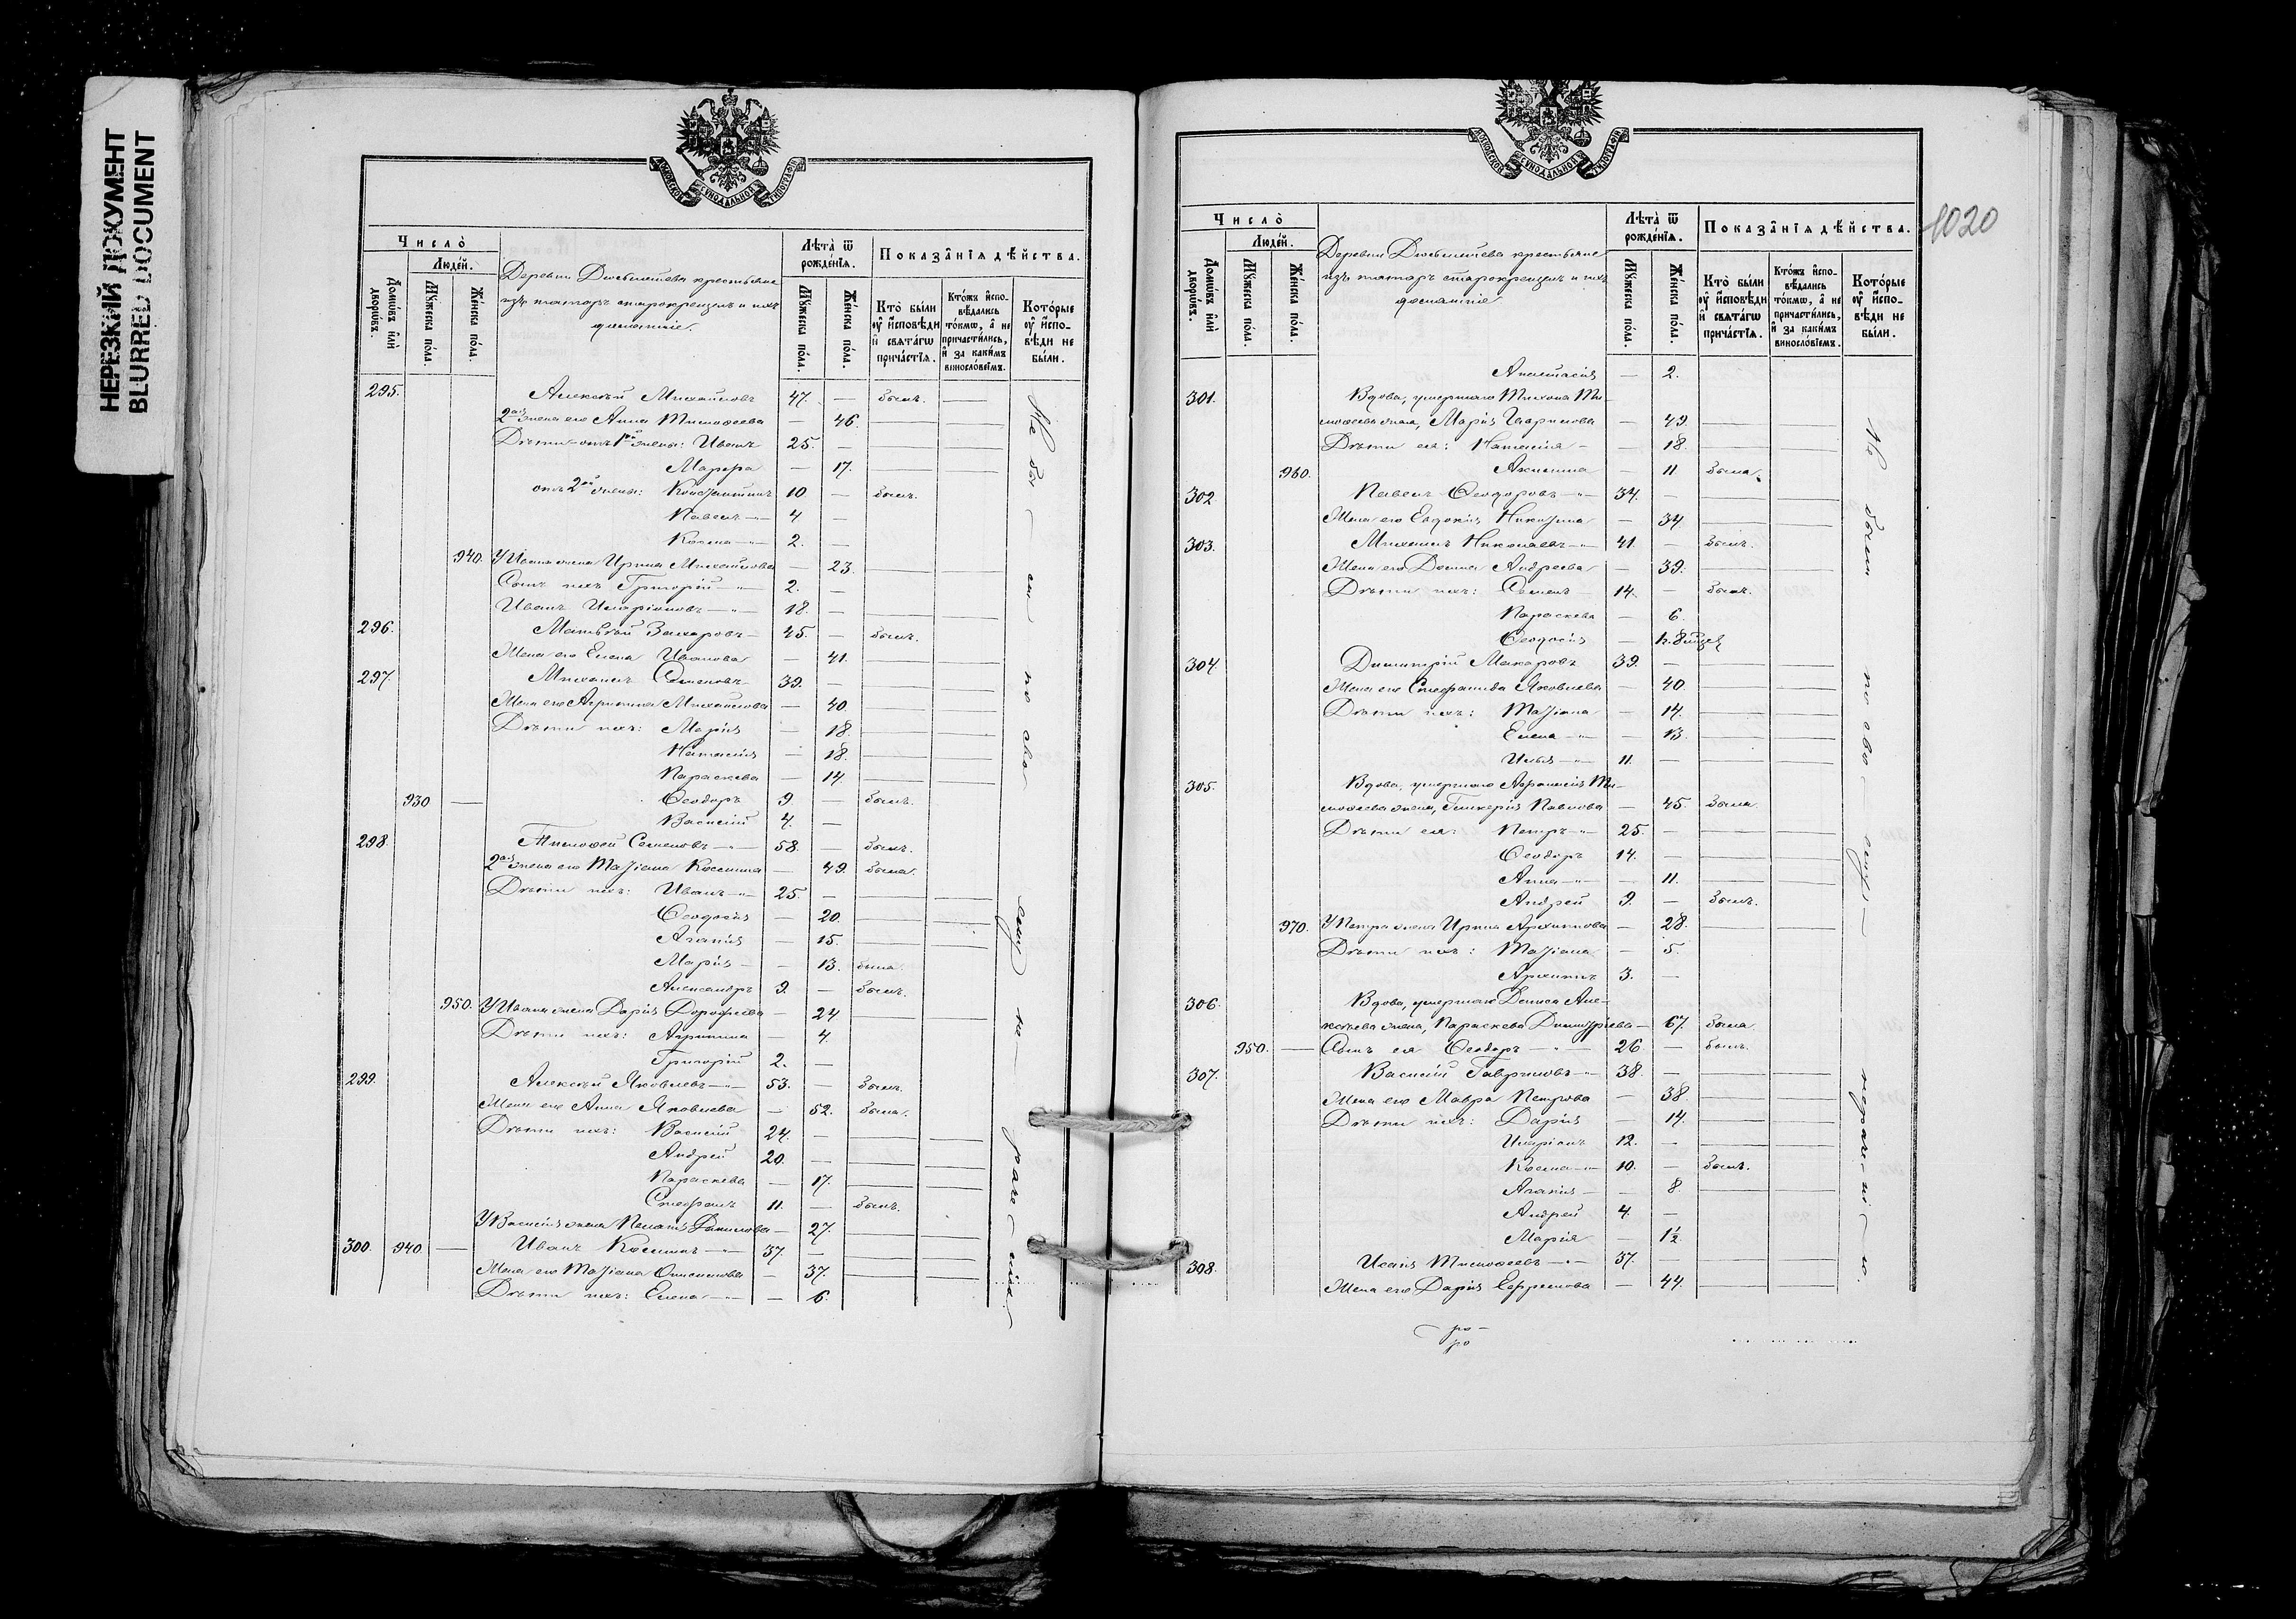 НЕРЕЗКИЙ ДОКУМЕНТ
BLURRED DOCUMENT
МОСКОВСКОЙ СѴНОДАЛЬНОЙ ТИПОГРАФІИ
Число̀
Людéй.
Домѡ́въ и҆лѝ дворѡ́въ.
Мꙋ́жеска по́ла.
Же́нска по́ла.
Деревни крестьяне
изъ татаръ старокрещенъ и ихъ
домашніе.
Лѣта̀ ѿ рожде́нїѧ.
Мꙋ́жеска по́ла.
Же́нска по́ла.
Показа̑нїѧ дѣ́йства.
Кто̀ бы́ли оу҆ и҆сповѣ́ди и҆ свѧта́гѡ прича́стїѧ.
Кто́жъ и҆спо-вѣ́дались то́кмѡ, а҆ не причасти́лись, и҆ за каки́мъ винослóвїемъ.
Кото́рые оу҆ и҆спо-вѣ́ди не бы́ли.
295. Алексѣй Михайловъ 47. — былъ.
2ая жена его Анна Тимоѳеева — 46.
Дѣти отъ 1ой жены: Иванъ 25. —
Марѳа — 17.
отъ 2ой жены: Константинъ 10 — былъ.
Павелъ 4 —
Косма 2. —
940. У Ивана жена Ирина Михайлова — 23.
Сынъ ихъ Григорій 2. —
Иванъ Иларіоновъ 18. —
296. Матвѣй Захаровъ 45. — былъ.
Жена его Елена Иванова — 41.
297. Михаилъ Семеновъ 39. —
Жена его Агрипина Михайлова — 40.
Дѣти ихъ: Марія — 18.
Наталія — 18.
Параскева — 14.
930 — Ѳеодоръ 9. — былъ.
Василій 4. —
298. Тимоѳей Семеновъ 58. — былъ.
2ая жена его Татіана Космина — 49. была.
Дѣти ихъ: Иванъ 25. —
Ѳеодосія — 20.
Агапія — 15.
Марія — 13. была.
Александръ 9. — былъ.
950. У Ивана жена Дарія Дороѳеева — 24
Дѣти ихъ: Агрипина — 4.
Григорій 2. —
299. Алексѣй Яковлевъ 53. — былъ.
Жена его Анна Яковлева — 52. была.
Дѣти ихъ: Василій 24. —
Андрей 20. —
Параскева — 17.
Стефанъ 11. — былъ.
У Василія жена Пелагія Данилова — 27.
300. 940 — Иванъ Косминъ 37. —
Жена его Татіана Онисимова — 37.
Дѣти ихъ: Елена — 6.
Не бы — ли по сво — ему не — раче — нію.
МОСКОВСКОЙ СѴНОДАЛЬНОЙ ТИПОГРАФІИ
1020
Число̀
Людéй.
Домѡ́въ и҆лѝ дворѡ́въ.
Мꙋ́жеска по́ла.
Же́нска по́ла.
Деревни крестьяне
изъ татаръ старокрещенъ и ихъ
домашніе
Лѣта̀ ѿ рожде́нїѧ.
Мꙋ́жеска по́ла.
Же́нска по́ла.
Показа̑нїѧ дѣ́йства.
Кто̀ бы́ли оу҆ и҆сповѣ́ди и҆ свѧта́гѡ прича́стїѧ.
Кто́жъ и҆спо-вѣ́дались то́кмѡ, а҆ не причасти́лись, и҆ за каки́мъ винослóвїемъ.
Кото́рые оу҆ и҆спо-вѣ́ди не бы́ли.
Анастасія — 2.
301. Вдова, умершаго Тихона Ти-
моѳеева жена, Марія Гаврилова — 49.
Дѣти ея: Наталія — 18.
960. Акилина — 11 была.
302 Павелъ Ѳеодоровъ 34. —
Жена его Евдокія Никитина — 34.
303. Михаилъ Николаевъ 41. — былъ.
Жена его Домна Андреева — 39.
Дѣти ихъ: Семенъ 14. — былъ.
Параскева — 6.
Ѳеодосія
304. Димитрій Макаровъ 39. —
Жена его Стефанида Яковлева — 40.
Дѣти ихъ: Татіана — 14.
Елена — 13.
Илья 11. —
305. Вдова, умершаго Аѳанасія Ти-
моѳеева жена, Гликерія Павлова — 45. была.
Дѣти ея: Петръ 25. —
Ѳеодоръ 14. —
Анна — 11.
Андрей 9. — былъ.
970. У Петра жена Ирина Архипова — 28.
Дѣти ихъ: Татіана — 5.
Архипъ 3. —
306. Вдова, умершаго Дениса Але-
ксѣева жена, Параскева Димитріева — 67. была
950. — Сынъ ея Ѳеодоръ 26 — былъ.
307. Василій Гавриловъ 38. —
Жена его Мавра Петрова — 38.
Дѣти ихъ: Дарія — 14.
Иларіонъ 12. —
Косма 10. — былъ.
Агапія — 8.
Андрей 4. —
Марія — 1½
308. Исаія Тимоѳеевъ 37. —
Жена его Дарія Ефремова — 44.
Не были по сво — ему — нераче — ні — ю.